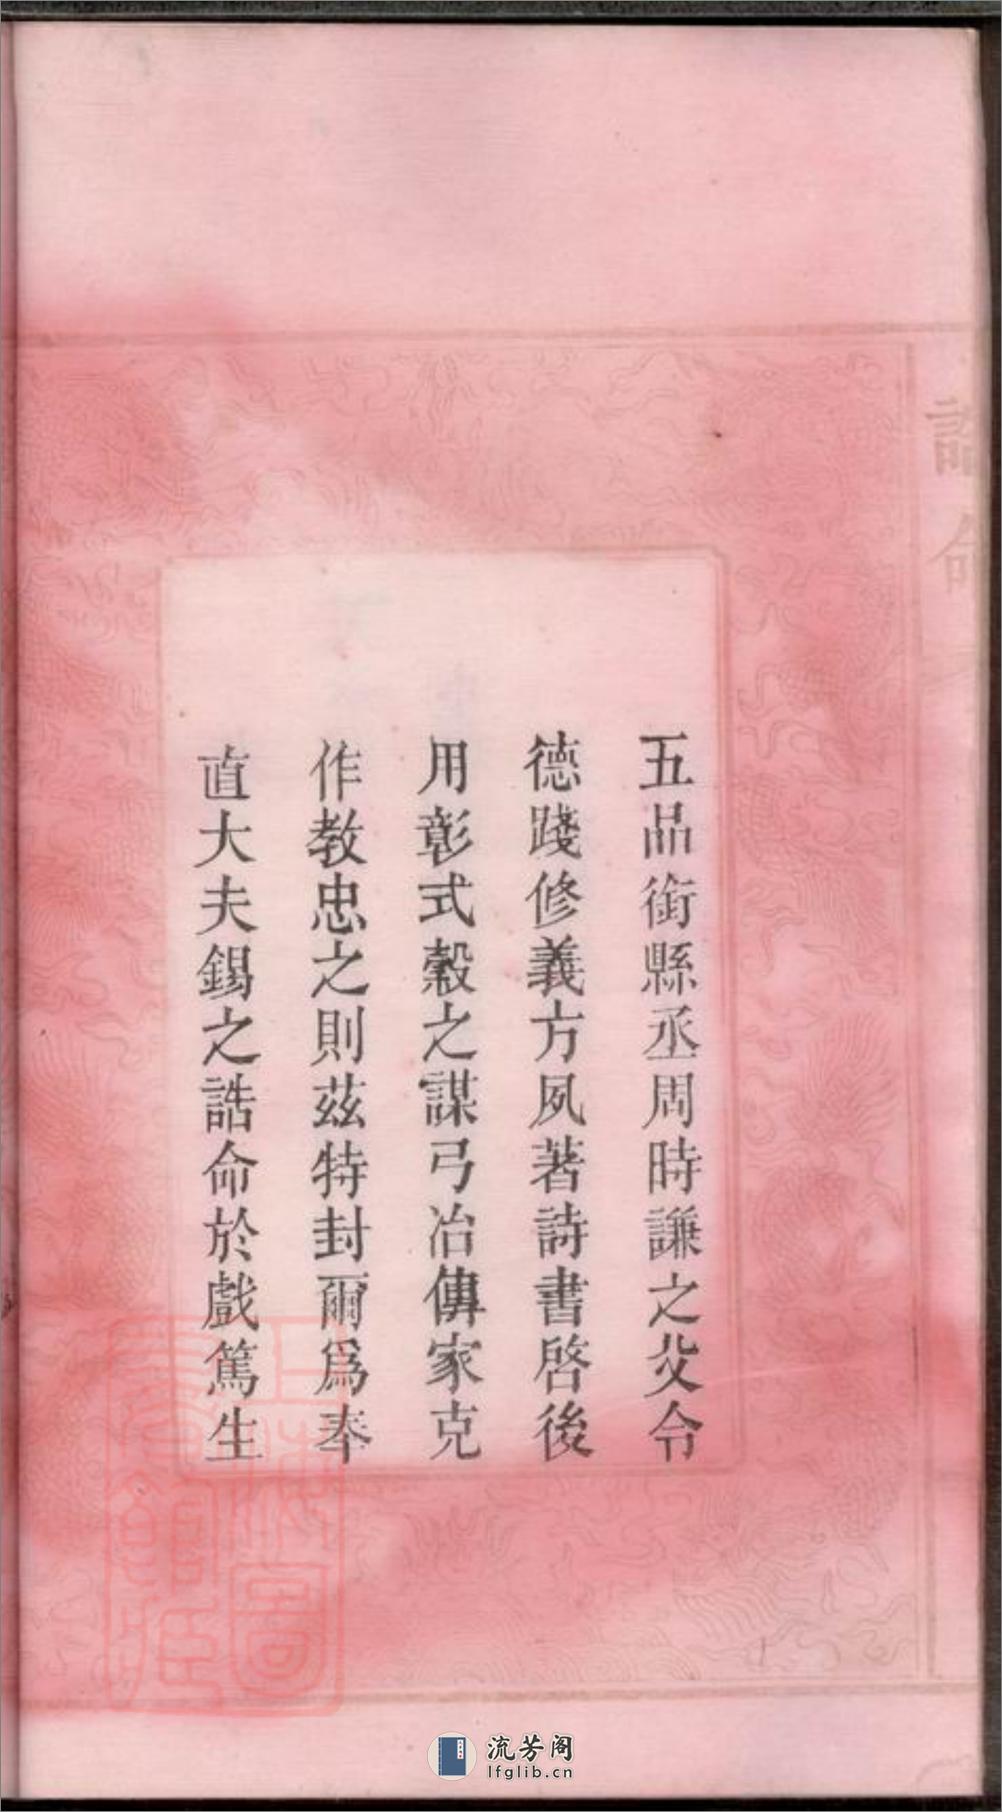 誥命
五品銜縣丞周時謙之父令
德踐修義方夙著詩書啓後
用彰式穀之謀弓冶傳家克
作教忠之則茲特封爾爲奉
直大夫錫之誥命於戲篤生
流芳阁
lfglib.cn